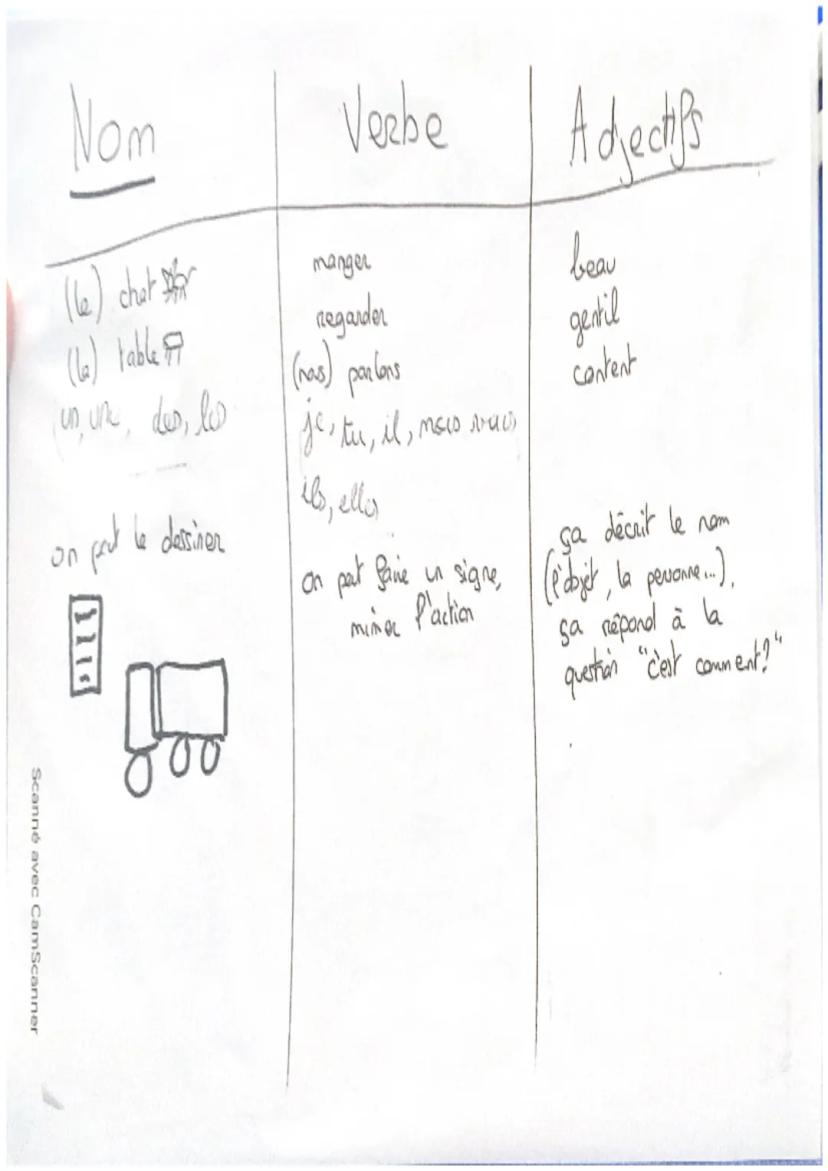 Nom
Verbe
Adjectifs
(le) chat
(la) table
un, une, des, les
on peut le dessiner
manger
regarder
(nous) parlons
je, tu, il, nous vous,
ils, elles
on peut faire un signe,
mimer l'action
beau
gentil
content
ça décrit le nom
(l'objet, la personne...),
ça répond à la
question "c'est comment?"
Scanné avec CamScanner